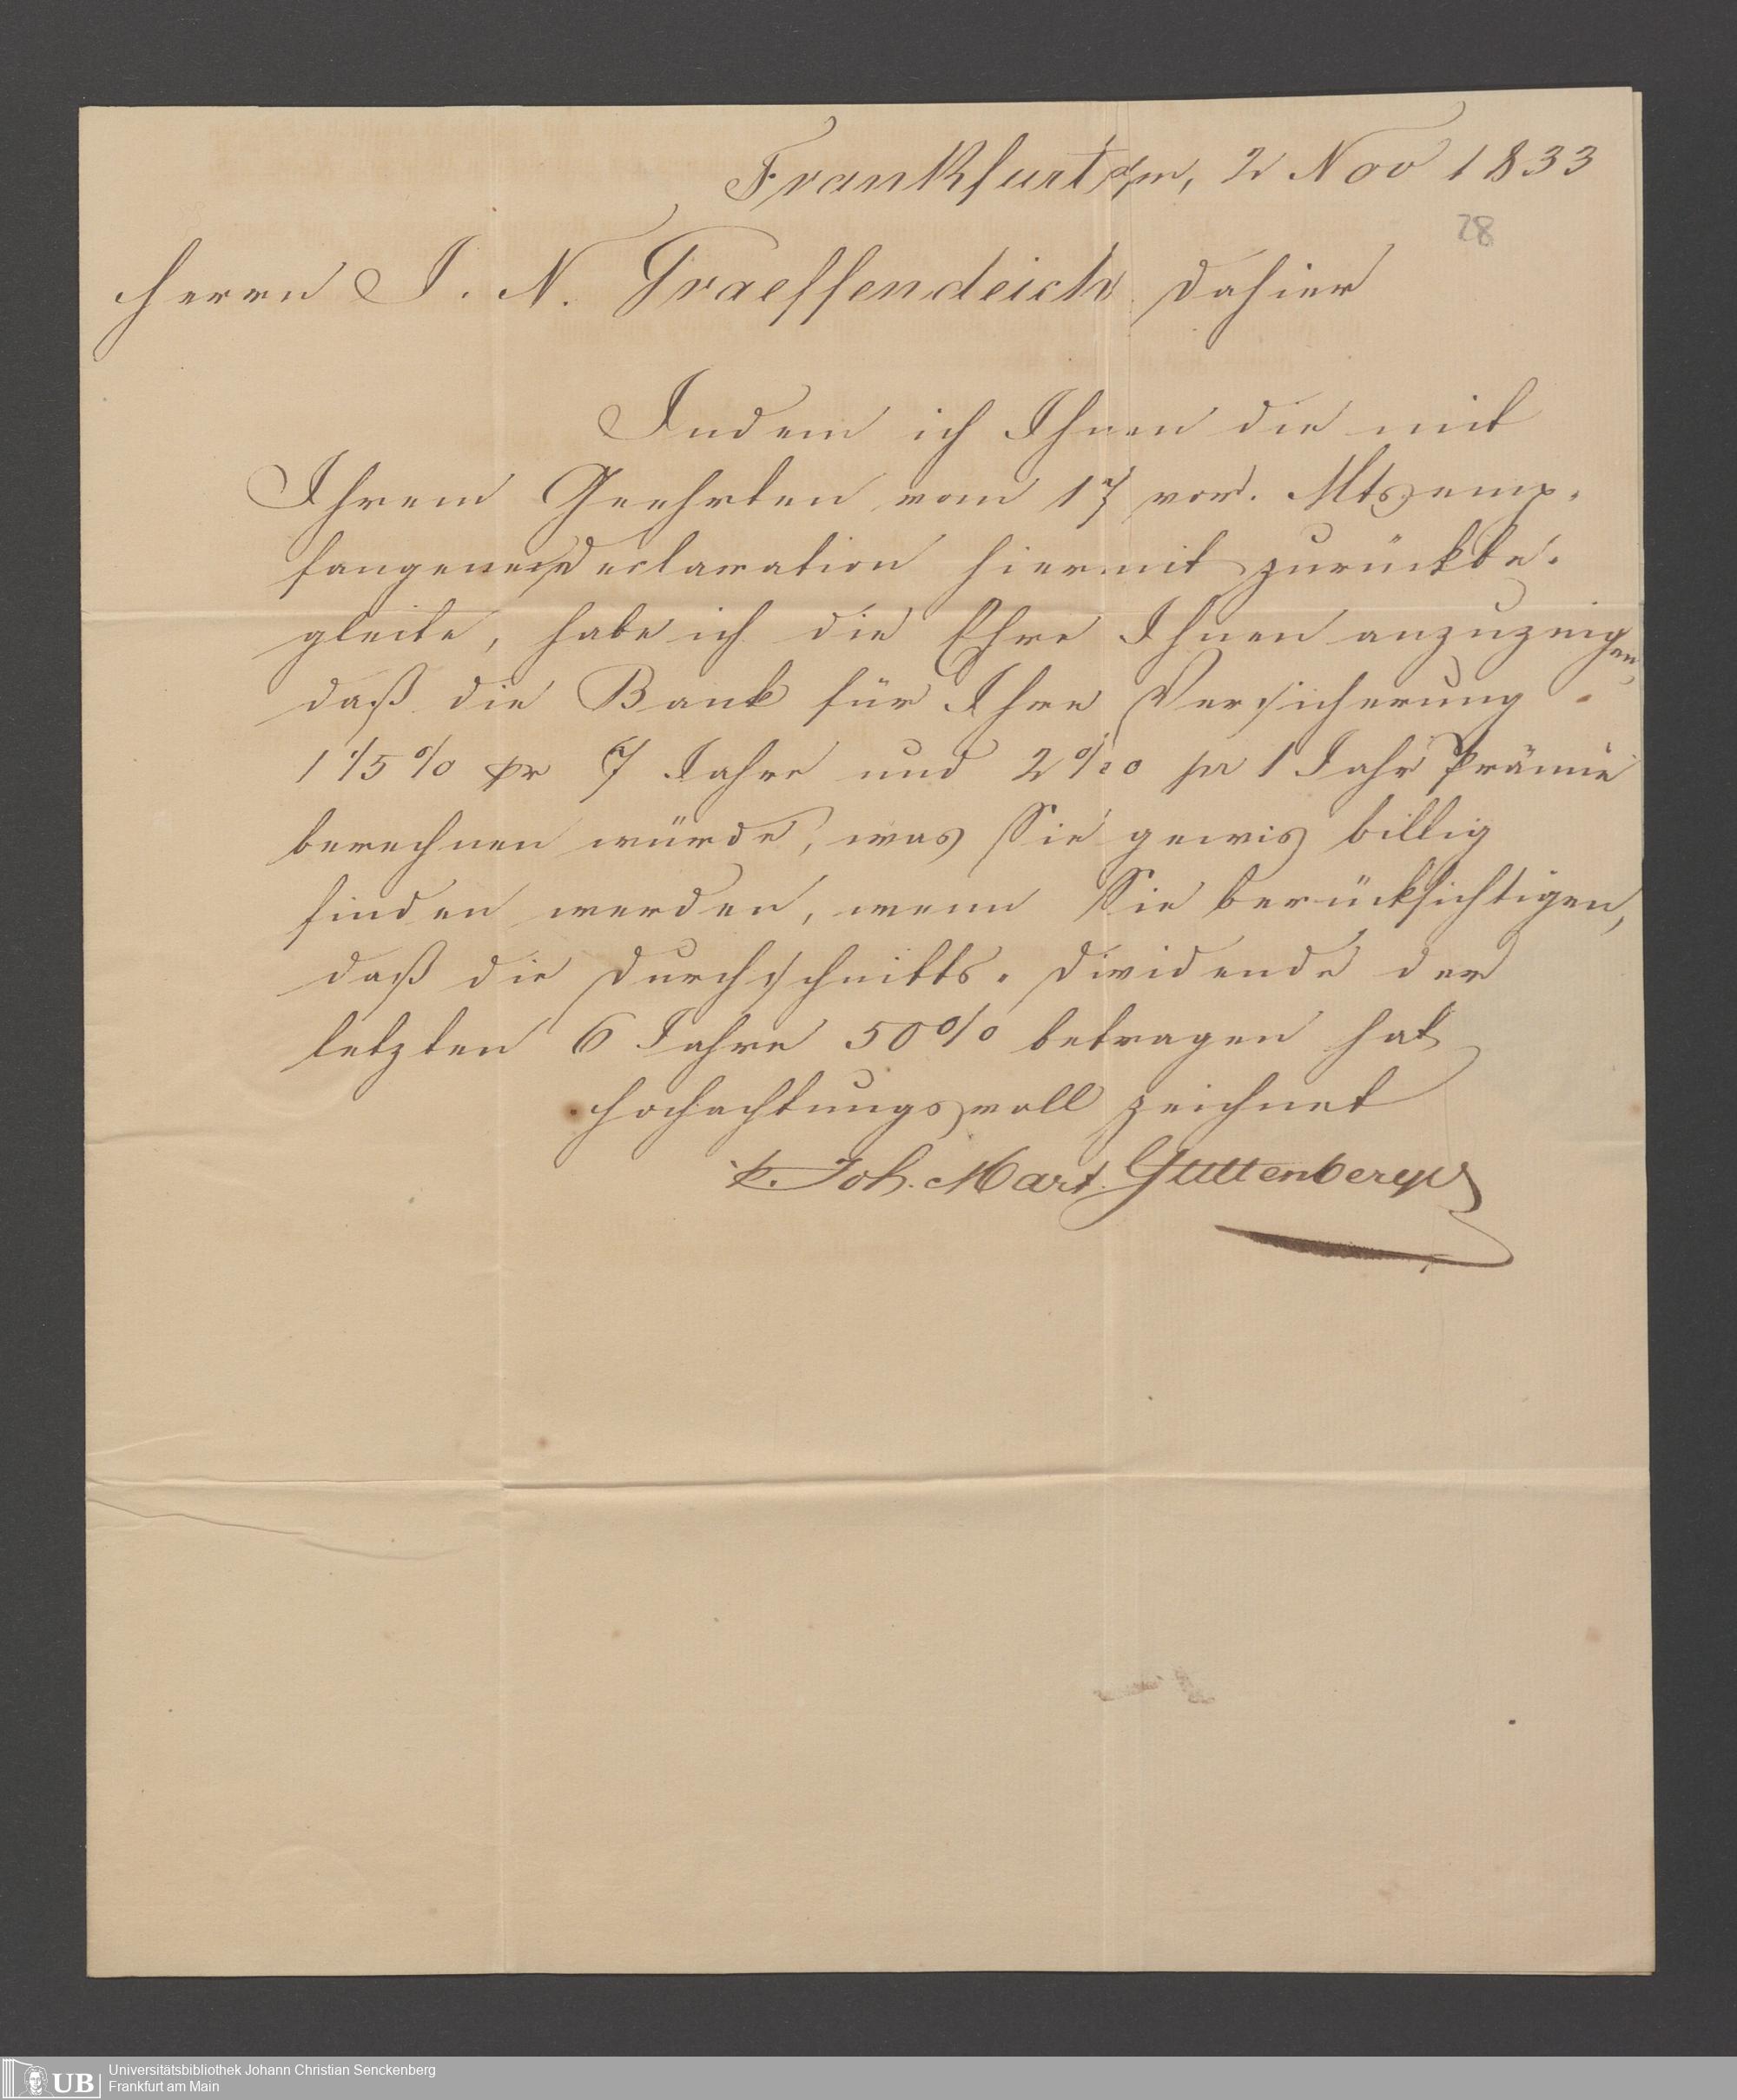 Frankfurt a/m, 2 Nov 1833
28
Herrn J. N. Graeffendeich dahier
Indem ich Ihnen die mit
Ihrem Geehrten vom 17 vor. Mts emp-
fangene Declaration hiermit zurückbe-
gleite, habe ich die Ehre Ihnen anzuzeigen,
daß die Bank für Ihre Versicherung
pr 7 Jahre und 2 ‰ pr 1 Jahr Prämie
berechnen würde, was Sie gewis billig
finden werden, wenn Sie berücksichtigen,
daß die Durchschnitts-Dividende der
letzten 6 Jahre 50 % betragen hat
Hochachtungsvoll zeichnet
Joh. Mart. Guttenberger
UB
Universitätsbibliothek Johann Christian Senckenberg
Frankfurt am Main